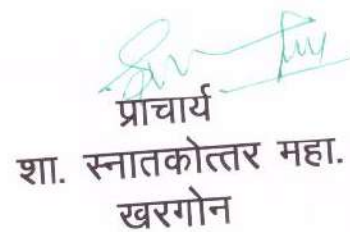 प्राचार्य
शा. स्नातकोत्तर महा.
खरगोन